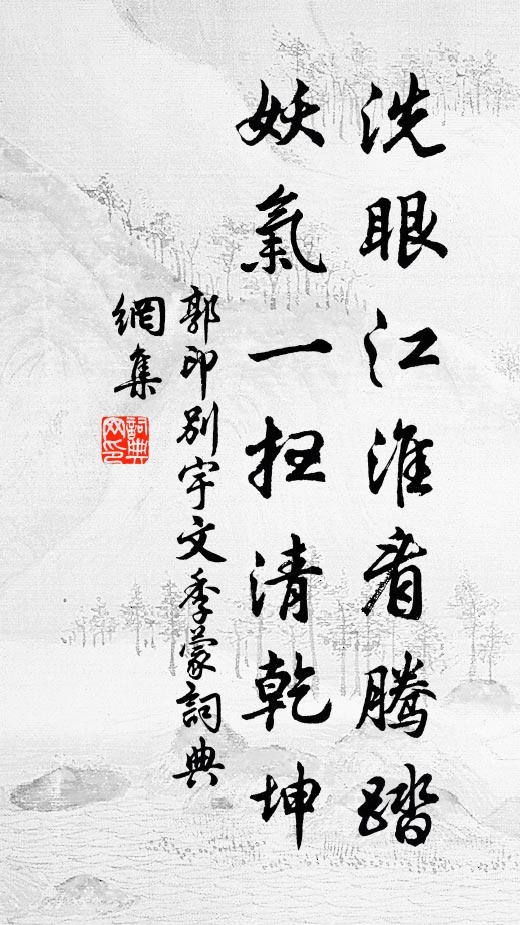 洗眼江淮看腾踏
妖氣一扫清乾坤
郭印别宇文季蒙詞典
網集
詞典
网印